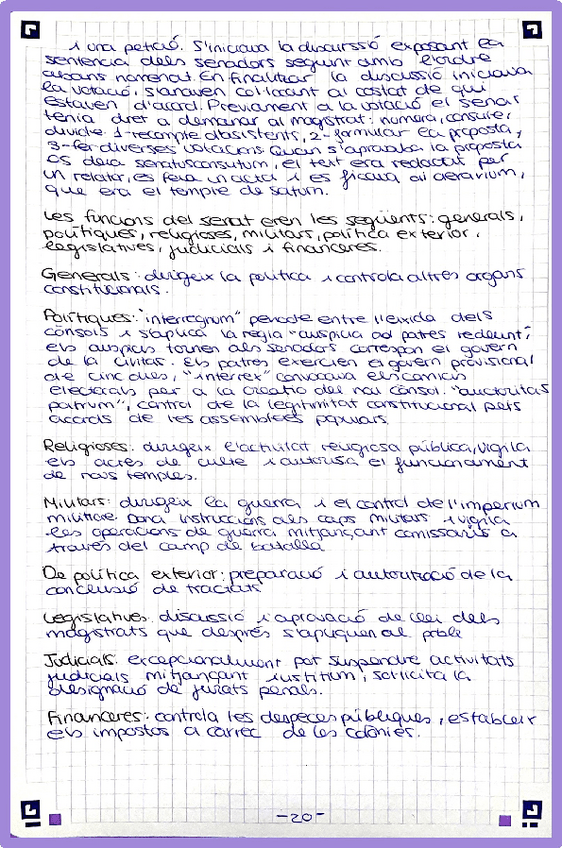 i una petició. S'iniciava la discussió exposant la
sentencia dels senadors seguint amb l'ordre
abans nomenat. En finalitzar la discussió iniciava
la votació, s'anaven col·locant al costat de qui
estaven d'acord. Previament a la votació el senat
tenia dret a demanar al magistrat: numera, consure,
divide. 1-recompte d'assistents, 2-formular la proposta,
3-fer diverses votacions. Quan s'aprovaba la proposta
es deia senatusconsutum, el text era redactat per
un relator, es feia un acta i es ficava al aerarium,
que era el temple de saturn.
Les funcions del senat eren les següents: generals,
polítiques, religioses, militars, política exterior,
legislatives, judicials i financeres.
Generals: dirigeix la política i controla altres organs
constitucionals.
Polítiques: "interregnum" periode entre l'eixida dels
cònsols i s'aplica la regla "auspicia ad patres redeunt",
els auspicis tornen als senadors correspon el govern
de la civitas. Els patres exercien el govern provisional
de cinc dies, "interrex" convocava els comicis
electorals per a la creació del nou cònsol. "auctoritas
patrum", control de la legitimitat constitucional pels
acords de les assemblees populars.
Religioses: dirigeix l'activitat religiosa pública, vigila
els actes de culte i autorisa el funcionament
de nous temples.
Militars: dirigeix la guerra i el control de l'imperium
militiae. Dona instruccions als caps militars i vigila
les operacions de guerra mitjançant comissaris a
través del camp de batalla
De política exterior: preparació i autorització de la
conclusió de tractats
Legislatives: discussió i aprovació de llei dels
magistrats que després s'apliquen al poble
Judicials: excepcionalment pot suspendre activitats
judicials mitjançant iustitium, sol·licita la
designació de jurats penals.
Financeres: controla les despeces públiques, estableix
els impostos a carrec de les colònies.
-20-